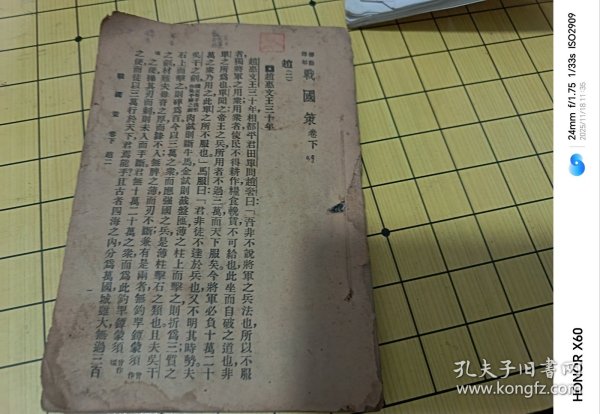 戰國策 卷下
趙(二)
趙惠文王三十年
趙惠文王三十年相都平君田單問趙奢曰「吾非不說將軍之兵法也所以不服
者獨將軍之用衆用衆者使民不得耕作糧食輓賃不可給也此坐而自破之道也非
單之所爲也單聞之帝王之兵所用者不過三萬而天下服矣今將軍必負十萬二十
萬之衆乃用之此單之所不服也」馬服曰「君非徒不達於兵也又不明其時勢夫
吳干之劍肉試則斷牛馬金試則截盤匜薄之柱上而擊之則折爲三質之
石上而擊之則碎爲百今以三萬之衆而應強國之兵是薄柱擊石之類也且夫吳干
之劍材難夫毋脊之厚而鋒不入無脾之薄而刃不斷兼有是兩者無鉤罕鐔蒙須
之便操其刃而刺則未入而手斷君無十萬二十萬之衆而爲此鉤罕鐔蒙須
之便而徒以三萬行於天下君焉能乎且古者四海之內分爲萬國城雖大無過三百
戰國策 卷下 趙二
孔夫子旧书网
www.kongfz.com
24mm f/1.75 1/33s ISO2909
2025/11/18 11:36
HONOR X60